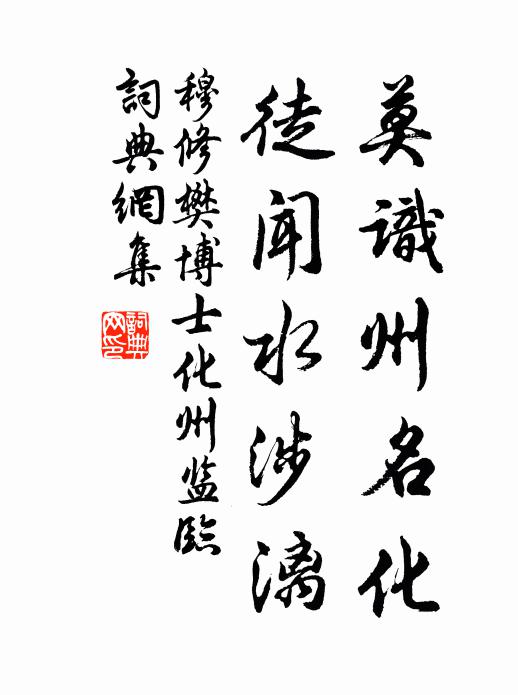 莫識州名化
徒聞水涉漓
穆修樊博士化州监臨
詞典網集
詞典网印